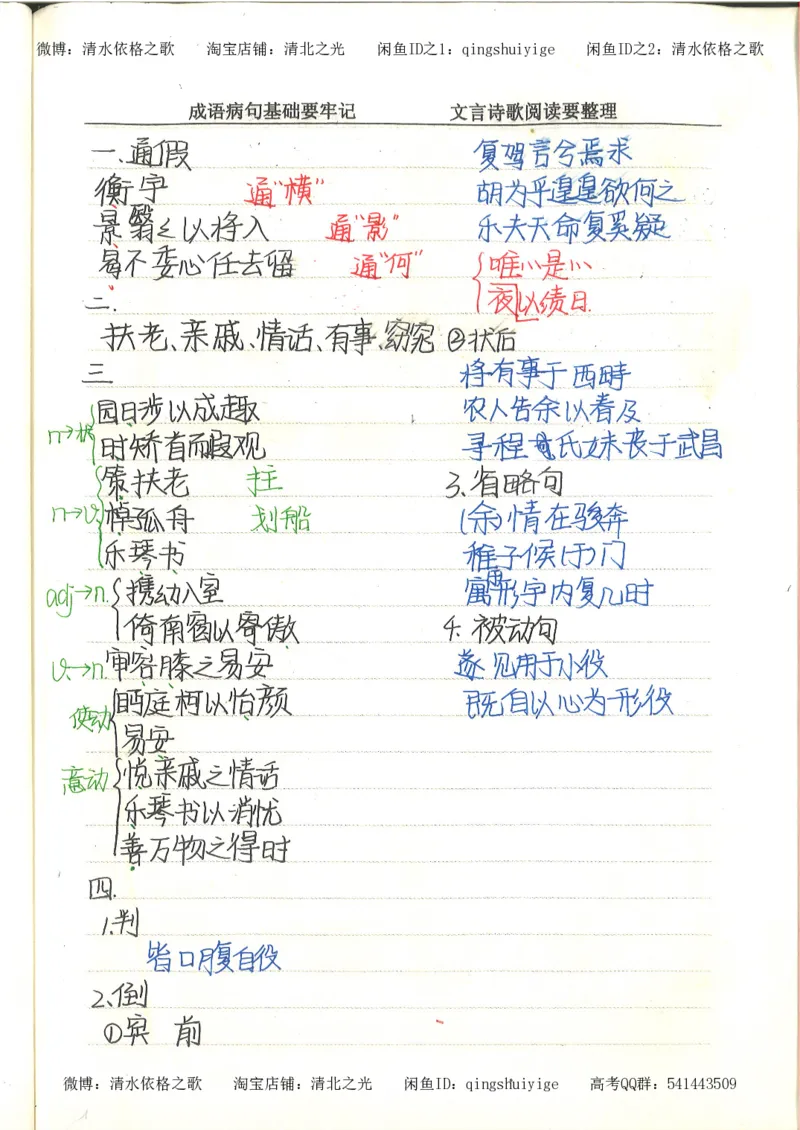 微博：清水依格之歌 淘宝店铺：清北之光 闲鱼ID之1：qingshuiyige 闲鱼ID之2：清水依格之歌
成语病句基础要牢记 文言诗歌阅读要整理
一.通假
衡宇 通“横”
景翳翳以将入 通“影”
曷不委心任去留 通“何”
二.
扶老、亲戚、情话、有事、窈窕
三
n→状
园日涉以成趣
时矫首而遐观
n→v.
策扶老 拄
棹孤舟 划船
乐琴书
adj→n.
携幼入室
倚南窗以寄傲
v.→n.
审容膝之易安
使动
眄庭柯以怡颜
易安
意动
悦亲戚之情话
乐琴书以消忧
善万物之得时
四.
1.判
皆口腹自役
2.倒
①宾 前
复驾言兮焉求
胡为乎遑遑欲何之
乐夫天命复奚疑
唯以是以
夜以绩日
②状后
将有事于西畴
农人告余以春及
寻程氏妹丧于武昌
3.省略句
(余)情在骏奔
稚子候(于)门
寓形宇内复几时
4.被动句
遂见用于小役
既自以心为形役
微博：清水依格之歌 淘宝店铺：清北之光 闲鱼ID：qingshuiyige 高考QQ群：541443509